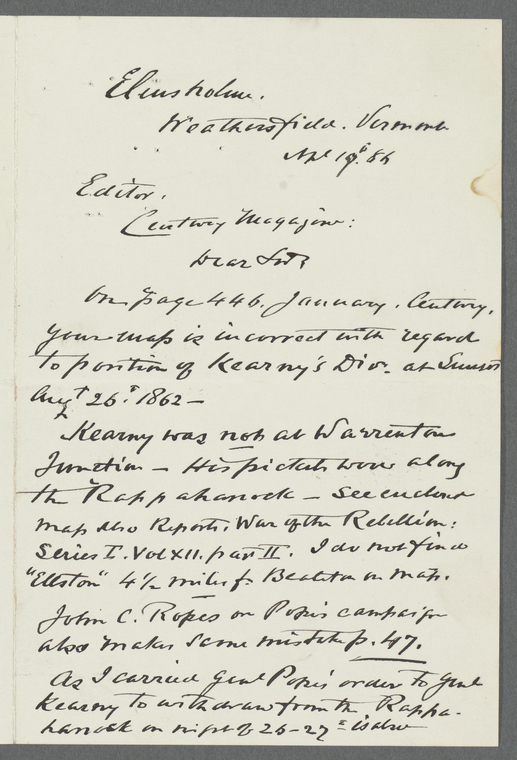 Weathersfield. Vermont
Apl 19th. 86
Editor.
Century Magazine:
Dear Sir,
On page 446. January. Century.
your map is incorrect with regard
to position of Kearny's Div. at Sunset
Augt 26th 1862 —
Kearny was not at Warrenton
Junction — His pickets were along
the Rappahannock — see enclosed
map also Reports. War of the Rebellion:
Series I. Vol XII. part II. I do not find
"Ellston" 4 1/2 miles fr Bealeton on map.
John C. Ropes on Pope's campaign
also makes same mistake p. 47.
As I carried Genl Pope's order to Genl
Kearny to withdraw from the Rappa-
hannock on night of 26-27th